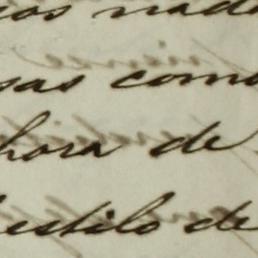 cos nada
sas como
hora de
estilo de